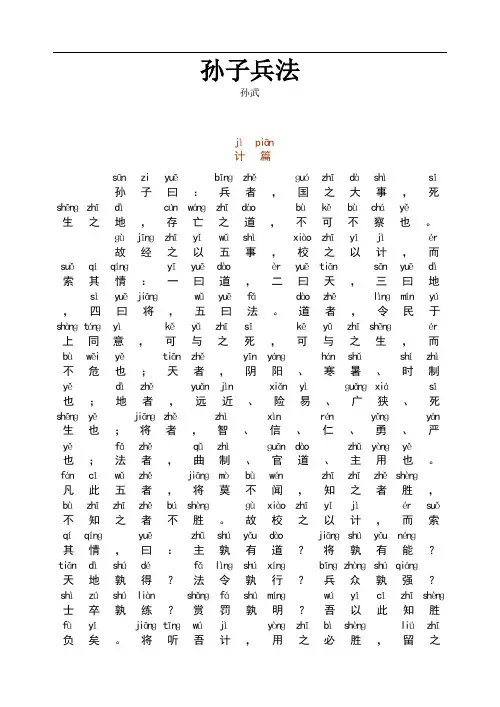 孙子兵法
孙武
jì piān
计 篇
sūn zi yuē bīng zhě guó zhī dà shì sǐ
孙 子 曰 : 兵 者 , 国 之 大 事 , 死
shēng zhī dì cún wáng zhī dào bù kě bù chá yě
生 之 地 , 存 亡 之 道 , 不 可 不 察 也 。
gù jīng zhī yǐ wǔ shì xiào zhī yǐ jì ér
故 经 之 以 五 事 , 校 之 以 计 , 而
suǒ qí qíng yī yuē dào èr yuē tiān sān yuē dì
索 其 情 : 一 曰 道 , 二 曰 天 , 三 曰 地
sì yuē jiāng wǔ yuē fǎ dào zhě lìng mín yú
, 四 曰 将 , 五 曰 法 。 道 者 , 令 民 于
shàng tóng yì kě yǔ zhī sǐ kě yǔ zhī shēng ér
上 同 意 , 可 与 之 死 , 可 与 之 生 , 而
bù wēi yě tiān zhě yīn yáng hán shǔ shí zhì
不 危 也 ; 天 者 , 阴 阳 、 寒 暑 、 时 制
yě dì zhě yuǎn jìn xiǎn yì guǎng xiá sǐ
也 ; 地 者 , 远 近 、 险 易 、 广 狭 、 死
shēng yě jiāng zhě zhì xìn rén yǒng yán
生 也 ; 将 者 , 智 、 信 、 仁 、 勇 、 严
yě fǎ zhě qǔ zhì guān dào zhǔ yòng yě
也 ; 法 者 , 曲 制 、 官 道 、 主 用 也 。
fán cǐ wǔ zhě jiāng mò bù wén zhī zhī zhě shèng
凡 此 五 者 , 将 莫 不 闻 , 知 之 者 胜 ,
bù zhī zhī zhě bú shèng gù xiào zhī yǐ jì ér suǒ
不 知 之 者 不 胜 。 故 校 之 以 计 , 而 索
qí qíng yuē zhǔ shú yǒu dào jiāng shú yǒu néng
其 情 , 曰 : 主 孰 有 道 ? 将 孰 有 能 ?
tiān dì shú dé fǎ lìng shú xíng bīng zhòng shú qiáng
天 地 孰 得 ? 法 令 孰 行 ? 兵 众 孰 强 ?
shì zú shú liàn shǎng fá shú míng wú yǐ cǐ zhī shèng
士 卒 孰 练 ? 赏 罚 孰 明 ? 吾 以 此 知 胜
fù yǐ jiāng tīng wú jì yòng zhī bì shèng liú zhī
负 矣 。 将 听 吾 计 , 用 之 必 胜 , 留 之